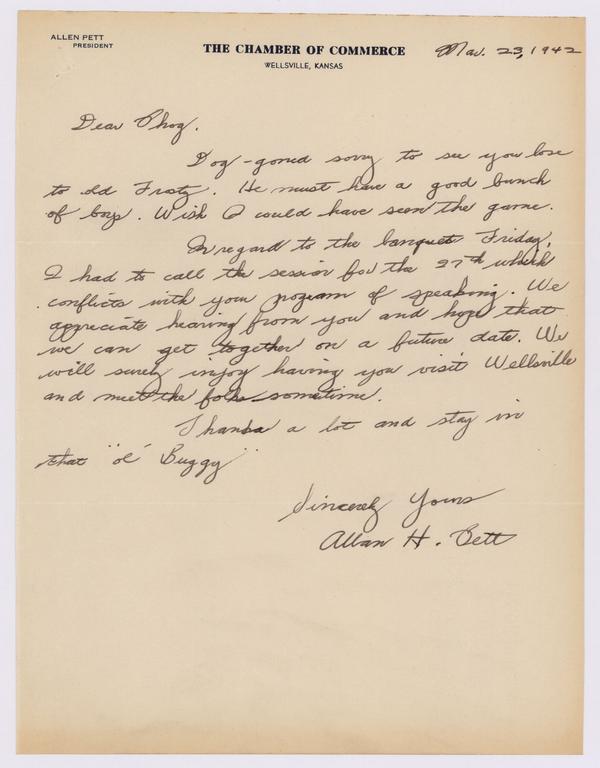 ALLEN PETT
PRESIDENT
THE CHAMBER OF COMMERCE
WELLSVILLE, KANSAS
Mar. 23, 1942
Dear Phog.
Dog-goned sorry to see you lose
to old Frosty. He must have a good bunch
of boys. Wish I could have seen the game.
In regard to the banquet Friday,
I had to call the session for the 27th which
conflicts with your program of speaking. We
appreciate hearing from you and hope that
we can get together on a future date. We
will surely injoy having you visit Wellsville
and meet the folks sometime.
Thanks a lot and stay in
that "ol' Buggy"
Sincerely Yours
Allan H. Pett